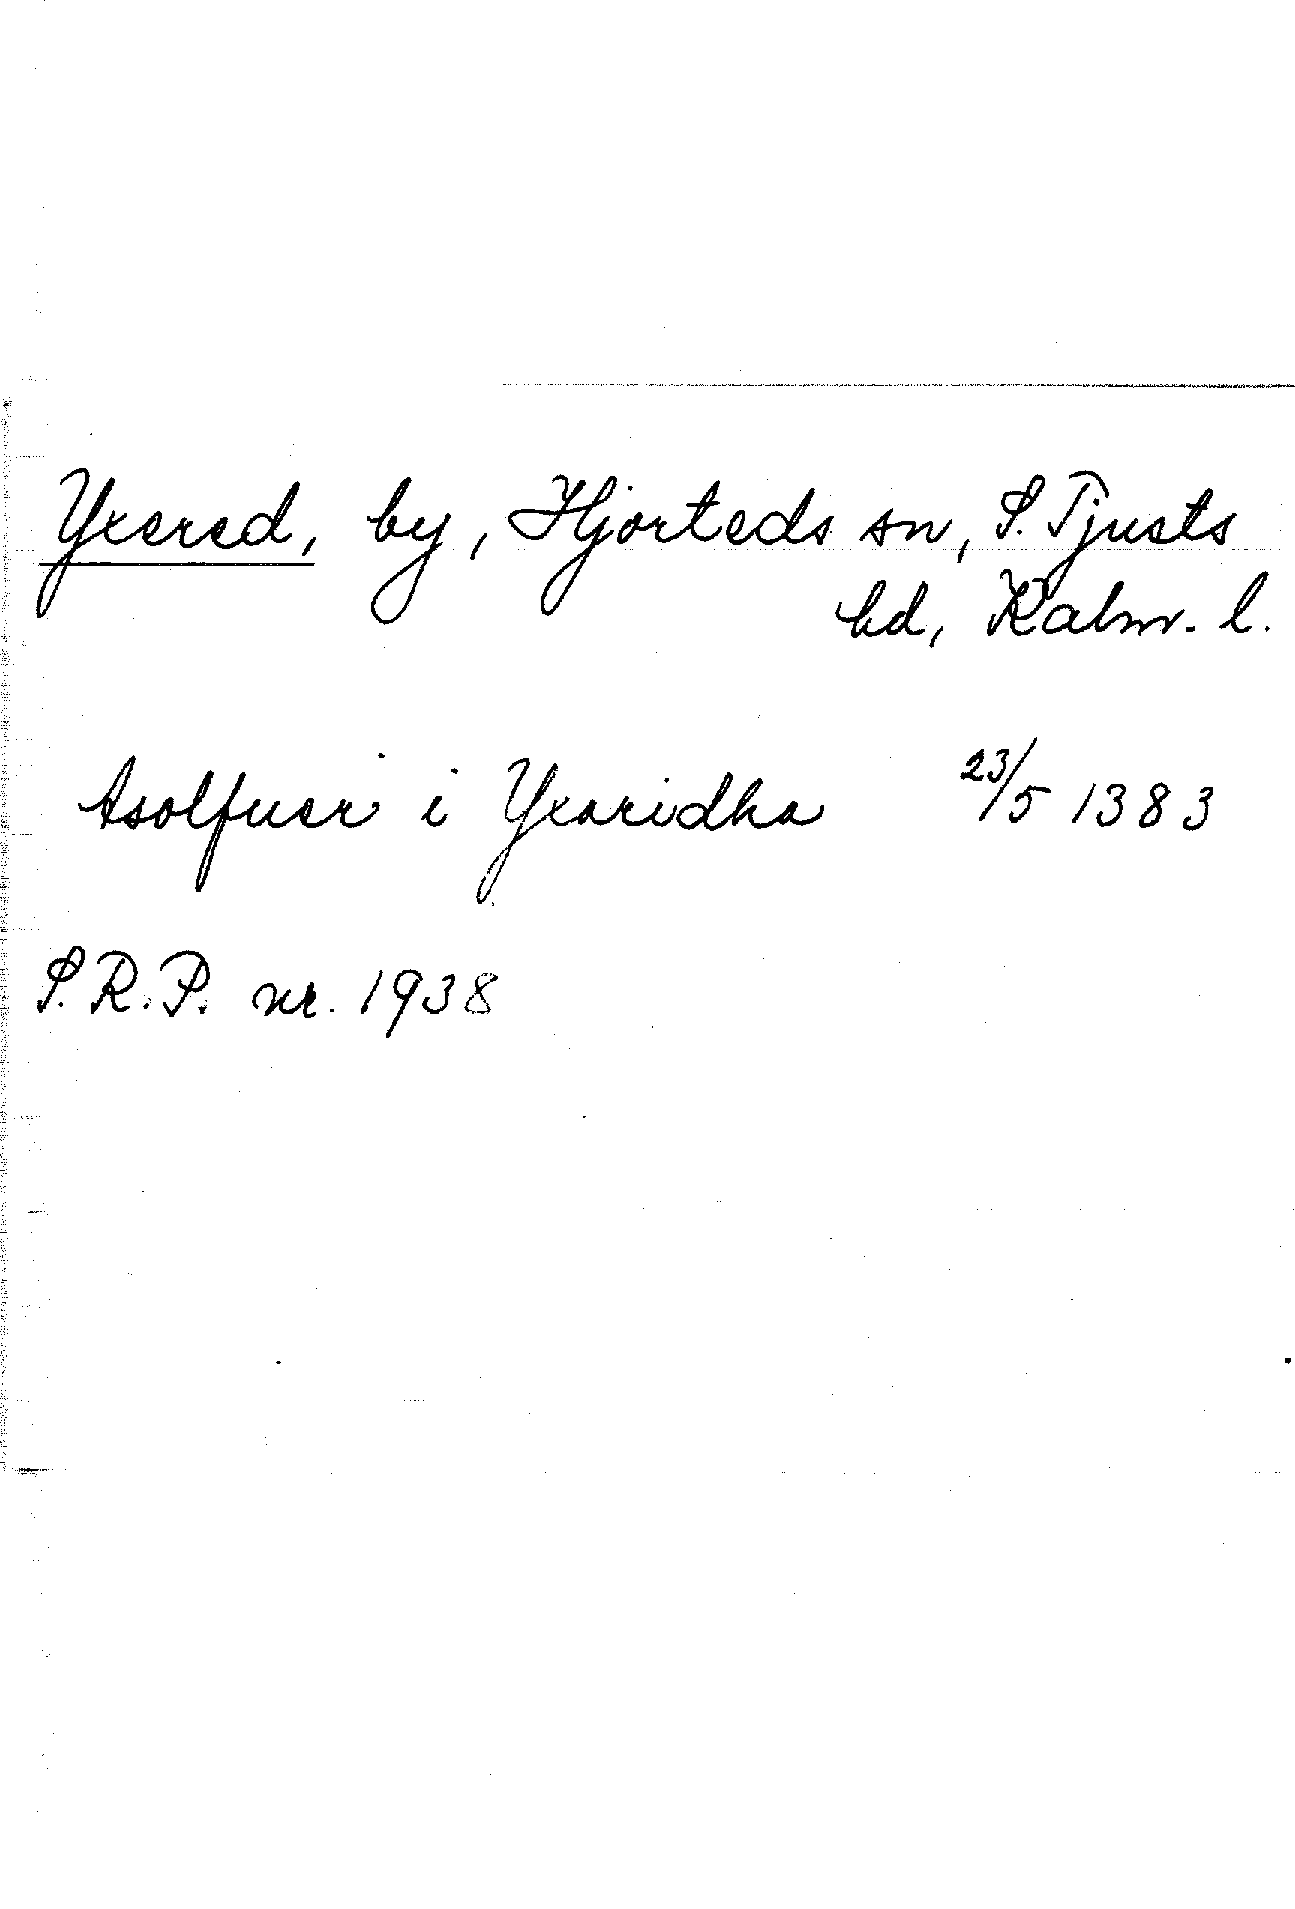 Yxered, by, Hjorteds sn, S. Tjusts
hd, Kalm. l.
Asolfuer i Yxaridha 23/5 1383
S.R.P. nr. 1938